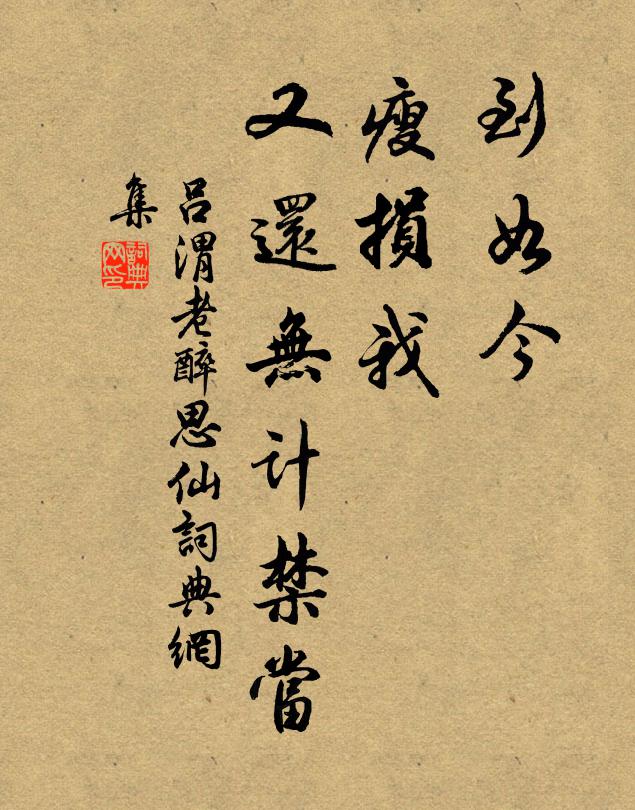 到如今
瘦損我
又還無計禁當
吕渭老醉思仙詞典網
集
詞典
网印